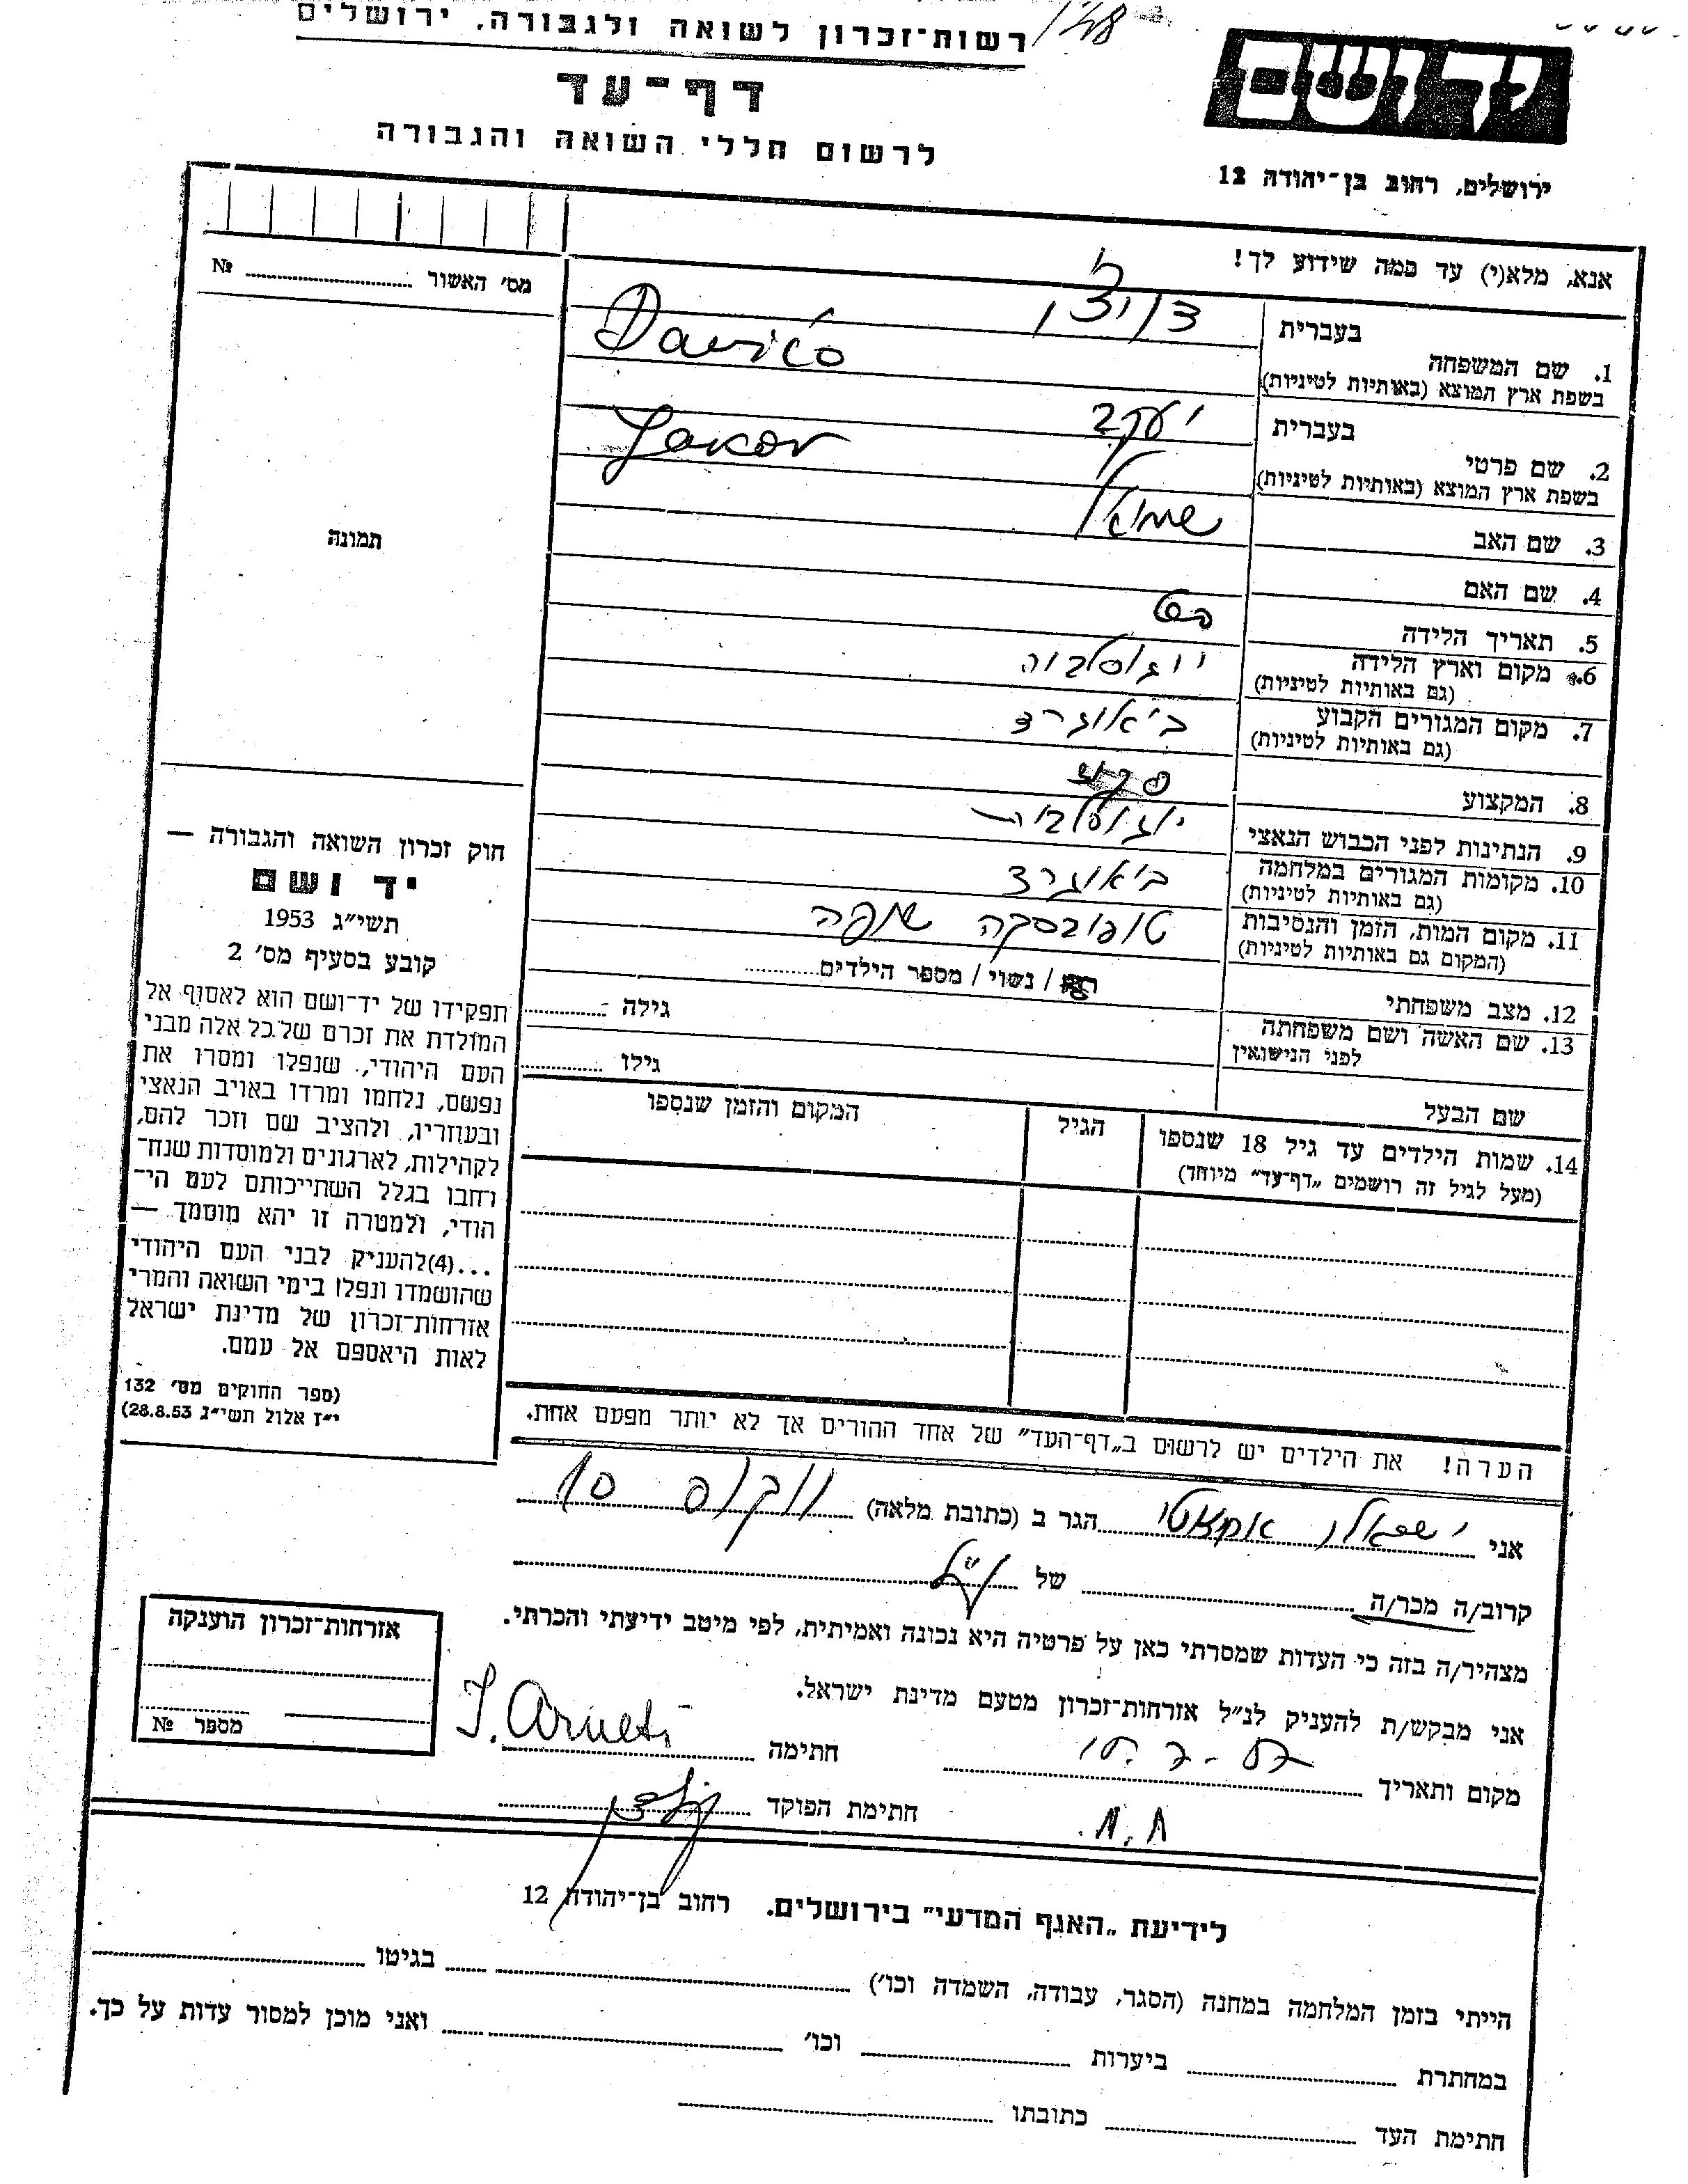 רשות־זכרון לשואה ולגבורה, ירושלים
148
יד ושם
דף־עד
לרשום חללי השואה והגבורה
ירושלים, רחוב בן־יהודה 12
אנא, מלא(י) עד כמה שידוע לך!
מס' האשור № 
תמונה
1. שם המשפחה
בעברית
בשפת ארץ המוצא (באותיות לטיניות)
Davičo
2. שם פרטי
בעברית יעקב
בשפת ארץ המוצא (באותיות לטיניות)
Jakov
3. שם האב שמואל
4. שם האם
5. תאריך הלידה
6. מקום וארץ הלידה יוגוסלביה
(גם באותיות לטיניות)
7. מקום המגורים הקבוע
(גם באותיות לטיניות)
8. המקצוע
9. הנתינות לפני הכבוש הנאצי
10. מקומות המגורים במלחמה
(גם באותיות לטיניות)
11. מקום המות, הזמן והנסיבות טופובסקה שופה
(המקום גם באותיות לטיניות)
12. מצב משפחתי / נשוי / מספר הילדים
13. שם האשה ושם משפחתה גילה
לפני הנישואין
שם הבעל גילו
14. שמות הילדים עד גיל 18 שנספו הגיל המקום והזמן שנספו
(מעל לגיל זה רושמים „דף־עד” מיוחד)
חוק זכרון השואה והגבורה —
יד ושם
תשי״ג 1953
קובע בסעיף מס' 2
תפקידו של יד־ושם הוא לאסוף אל
המולדת את זכרם של כל אלה מבני
העם היהודי, שנפלו ומסרו את
נפשם, נלחמו ומרדו באויב הנאצי
ובעוזריו, ולהציב שם וזכר להם,
לקהילות, לארגונים ולמוסדות שנח־
רחבו בגלל השתייכותם לעם הי־
הודי, ולמטרה זו יהא מוסמך —
...(4)להעניק לבני העם היהודי
שהושמדו ונפלו בימי השואה והמרי
אזרחות־זכרון של מדינת ישראל
לאות היאספם אל עמם.
(ספר החוקים מס' 132
י״ז אלול תשי״ג 28.8.53)
הערה! את הילדים יש לרשום ב„דף־העד” של אחד ההורים אך לא יותר מפעם אחת.
אני הגר ב (כתובת מלאה)
קרוב/ה מכר/ה של
מצהיר/ה בזה כי העדות שמסרתי כאן על פרטיה היא נכונה ואמיתית, לפי מיטב ידיעתי והכרתי.
אני מבקש/ת להעניק לנ״ל אזרחות־זכרון מטעם מדינת ישראל.
מקום ותאריך חתימה
חתימת הפוקד
אזרחות־זכרון הוענקה
מספר №
לידיעת „האגף המדעי” בירושלים. רחוב בן־יהודה 12
הייתי בזמן המלחמה במחנה (הסגר, עבודה, השמדה וכו') בגיטו
במחתרת ביערות וכו' ואני מוכן למסור עדות על כך.
חתימת העד כתובתו